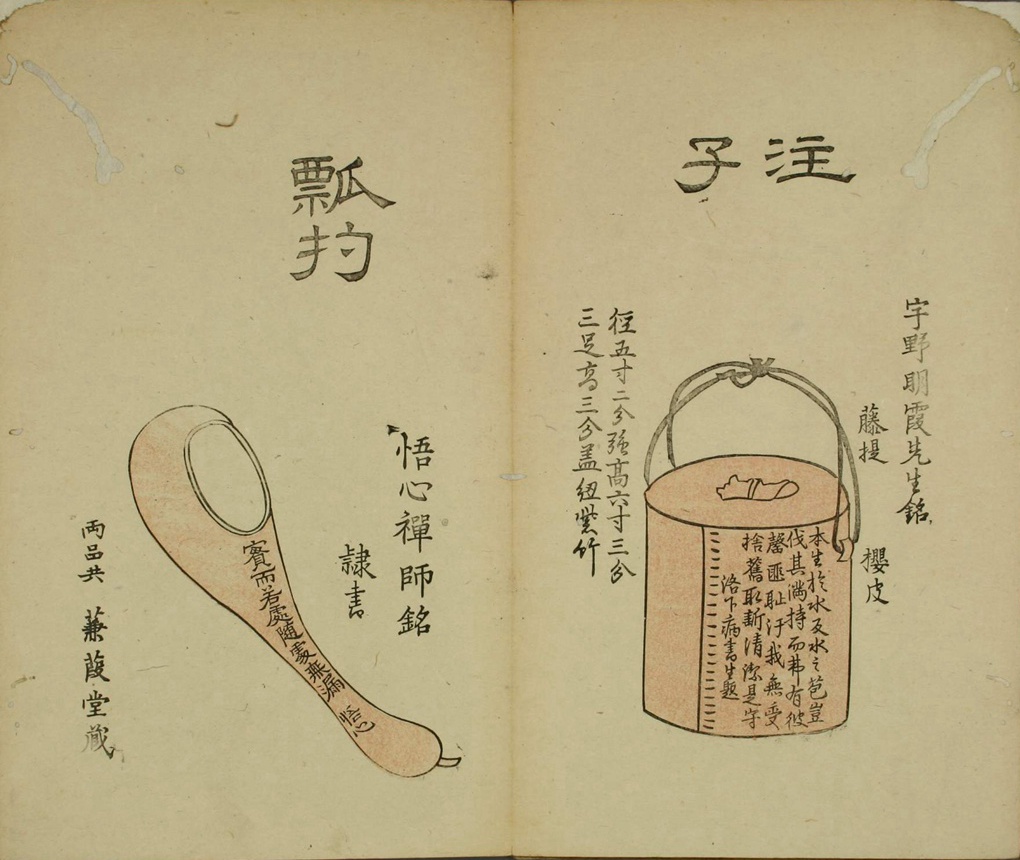 注子
宇野明霞先生銘
藤提
櫻皮
本生於水及水之苞豈
伐其滿持而弗有彼
罄匪耻汙我無受
捨舊取新清潔是守
洛下病書生題
徑五寸二分強高六寸三分
三足高三分盖紐紫竹
瓢扚
悟心禪師銘
隷書
實而若虛随處無漏 悟心
両品共 蒹葭堂蔵